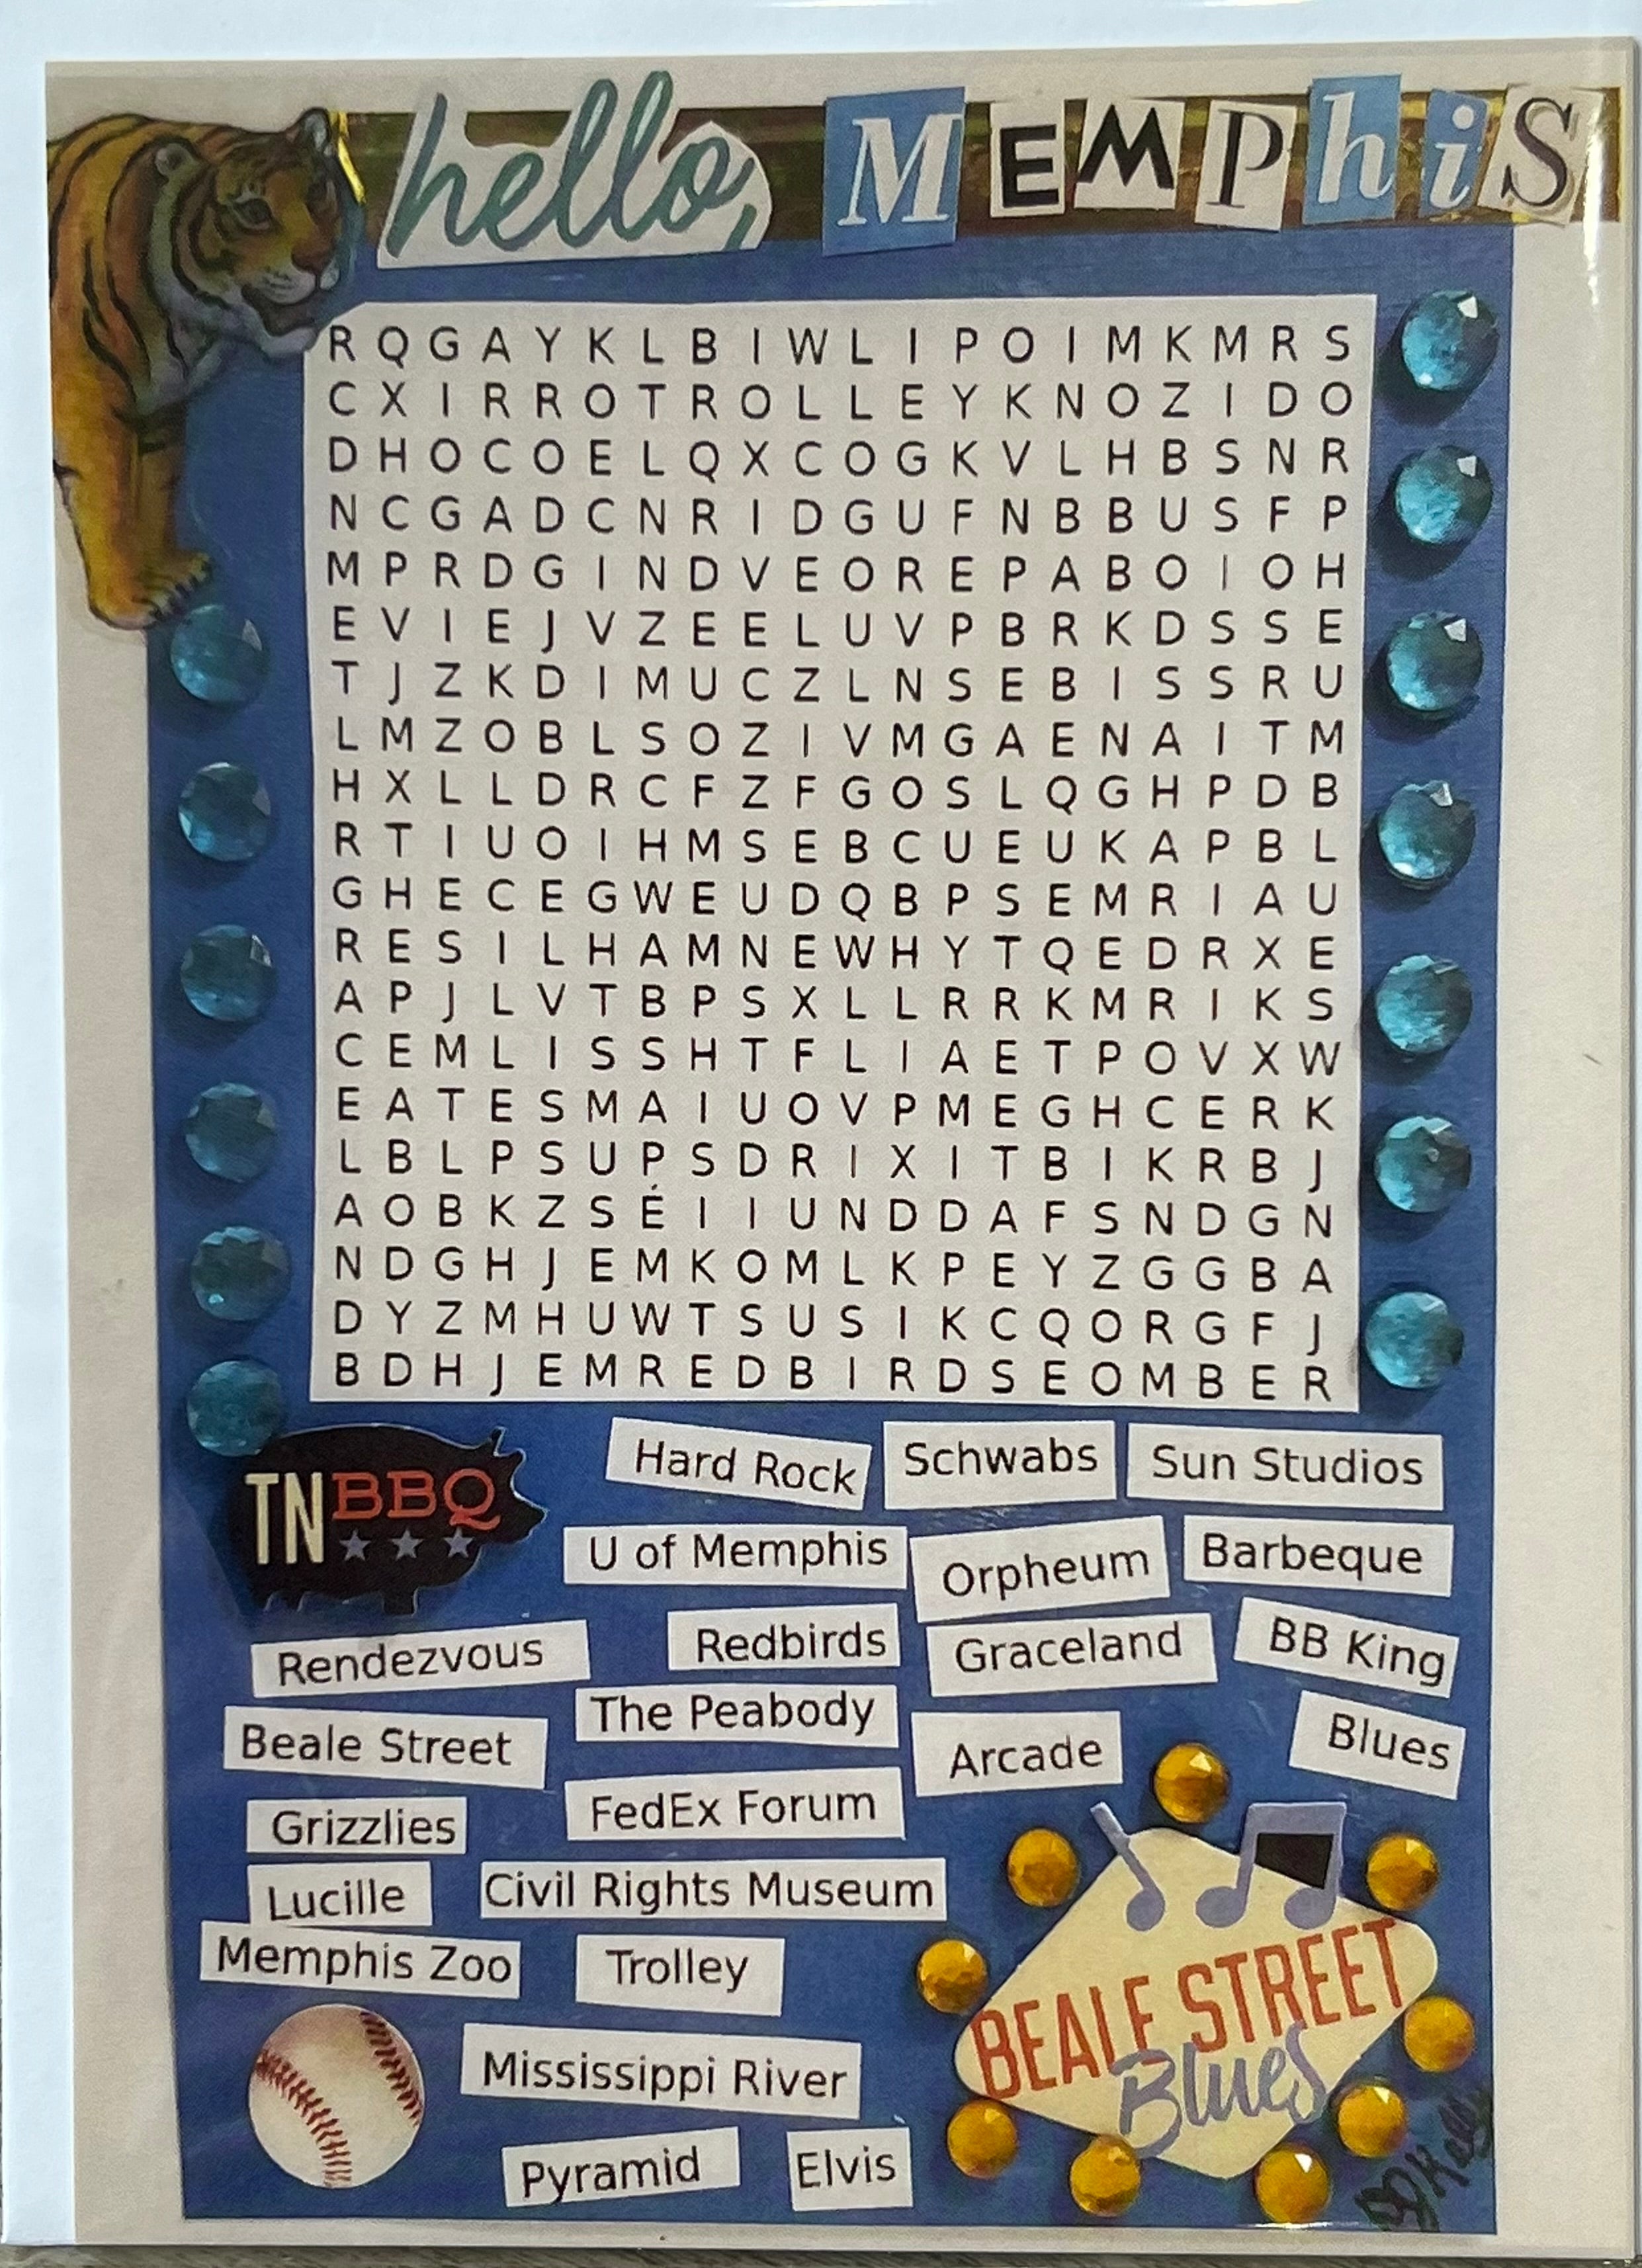 hello, MEMPhiS
R Q G A Y K L B I W L I P O I M K M R S
C X I R R O T R O L L E Y K N O Z I D O
D H O C O E L Q X C O G K V L H B S N R
N C G A D C N R I D G U F N B B U S F P
M P R D G I N D V E O R E P A B O I O H
E V I E J V Z E E L U V P B R K D S S E
T J Z K D I M U C Z L N S E B I S S R U
L M Z O B L S O Z I V M G A E N A I T M
H X L L D R C F Z F G O S L Q G H P D B
R T I U O I H M S E B C U E U K A P B L
G H E C E G W E U D Q B P S E M R I A U
R E S I L H A M N E W H Y T Q E D R X E
A P J L V T B P S X L L R R K M R I K S
C E M L I S S H T F L I A E T P O V X W
E A T E S M A I U O V P M E G H C E R K
L B L P S U P S D R I X I T B I K R B J
A O B K Z S É I I U N D D A F S N D G N
N D G H J E M K O M L K P E Y Z G G B A
D Y Z M H U W T S U S I K C Q O R G F J
B D H J E M R E D B I R D S E O M B E R
TN BBQ
Hard Rock
Schwabs
Sun Studios
U of Memphis
Orpheum
Barbeque
Rendezvous
Redbirds
Graceland
BB King
Beale Street
The Peabody
Arcade
Blues
Grizzlies
FedEx Forum
Lucille
Civil Rights Museum
Memphis Zoo
Trolley
BEALE STREET
Blues
Mississippi River
Pyramid
Elvis